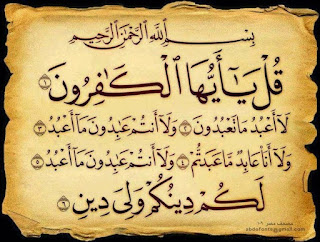 بِسْمِ ٱللَّهِ ٱلرَّحْمَٰنِ ٱلرَّحِيمِ
قُلْ يَٰٓأَيُّهَا ٱلْكَٰفِرُونَ ١
لَآ أَعْبُدُ مَا تَعْبُدُونَ ٢ وَلَآ أَنتُمْ عَٰبِدُونَ مَآ أَعْبُدُ ٣
وَلَآ أَنَا۠ عَابِدٌ مَّا عَبَدتُّمْ ٤ وَلَآ أَنتُمْ عَٰبِدُونَ مَآ أَعْبُدُ ٥
لَكُمْ دِينُكُمْ وَلِىَ دِينِ ٦
مصحف مصر
abdofonts@gmail.com